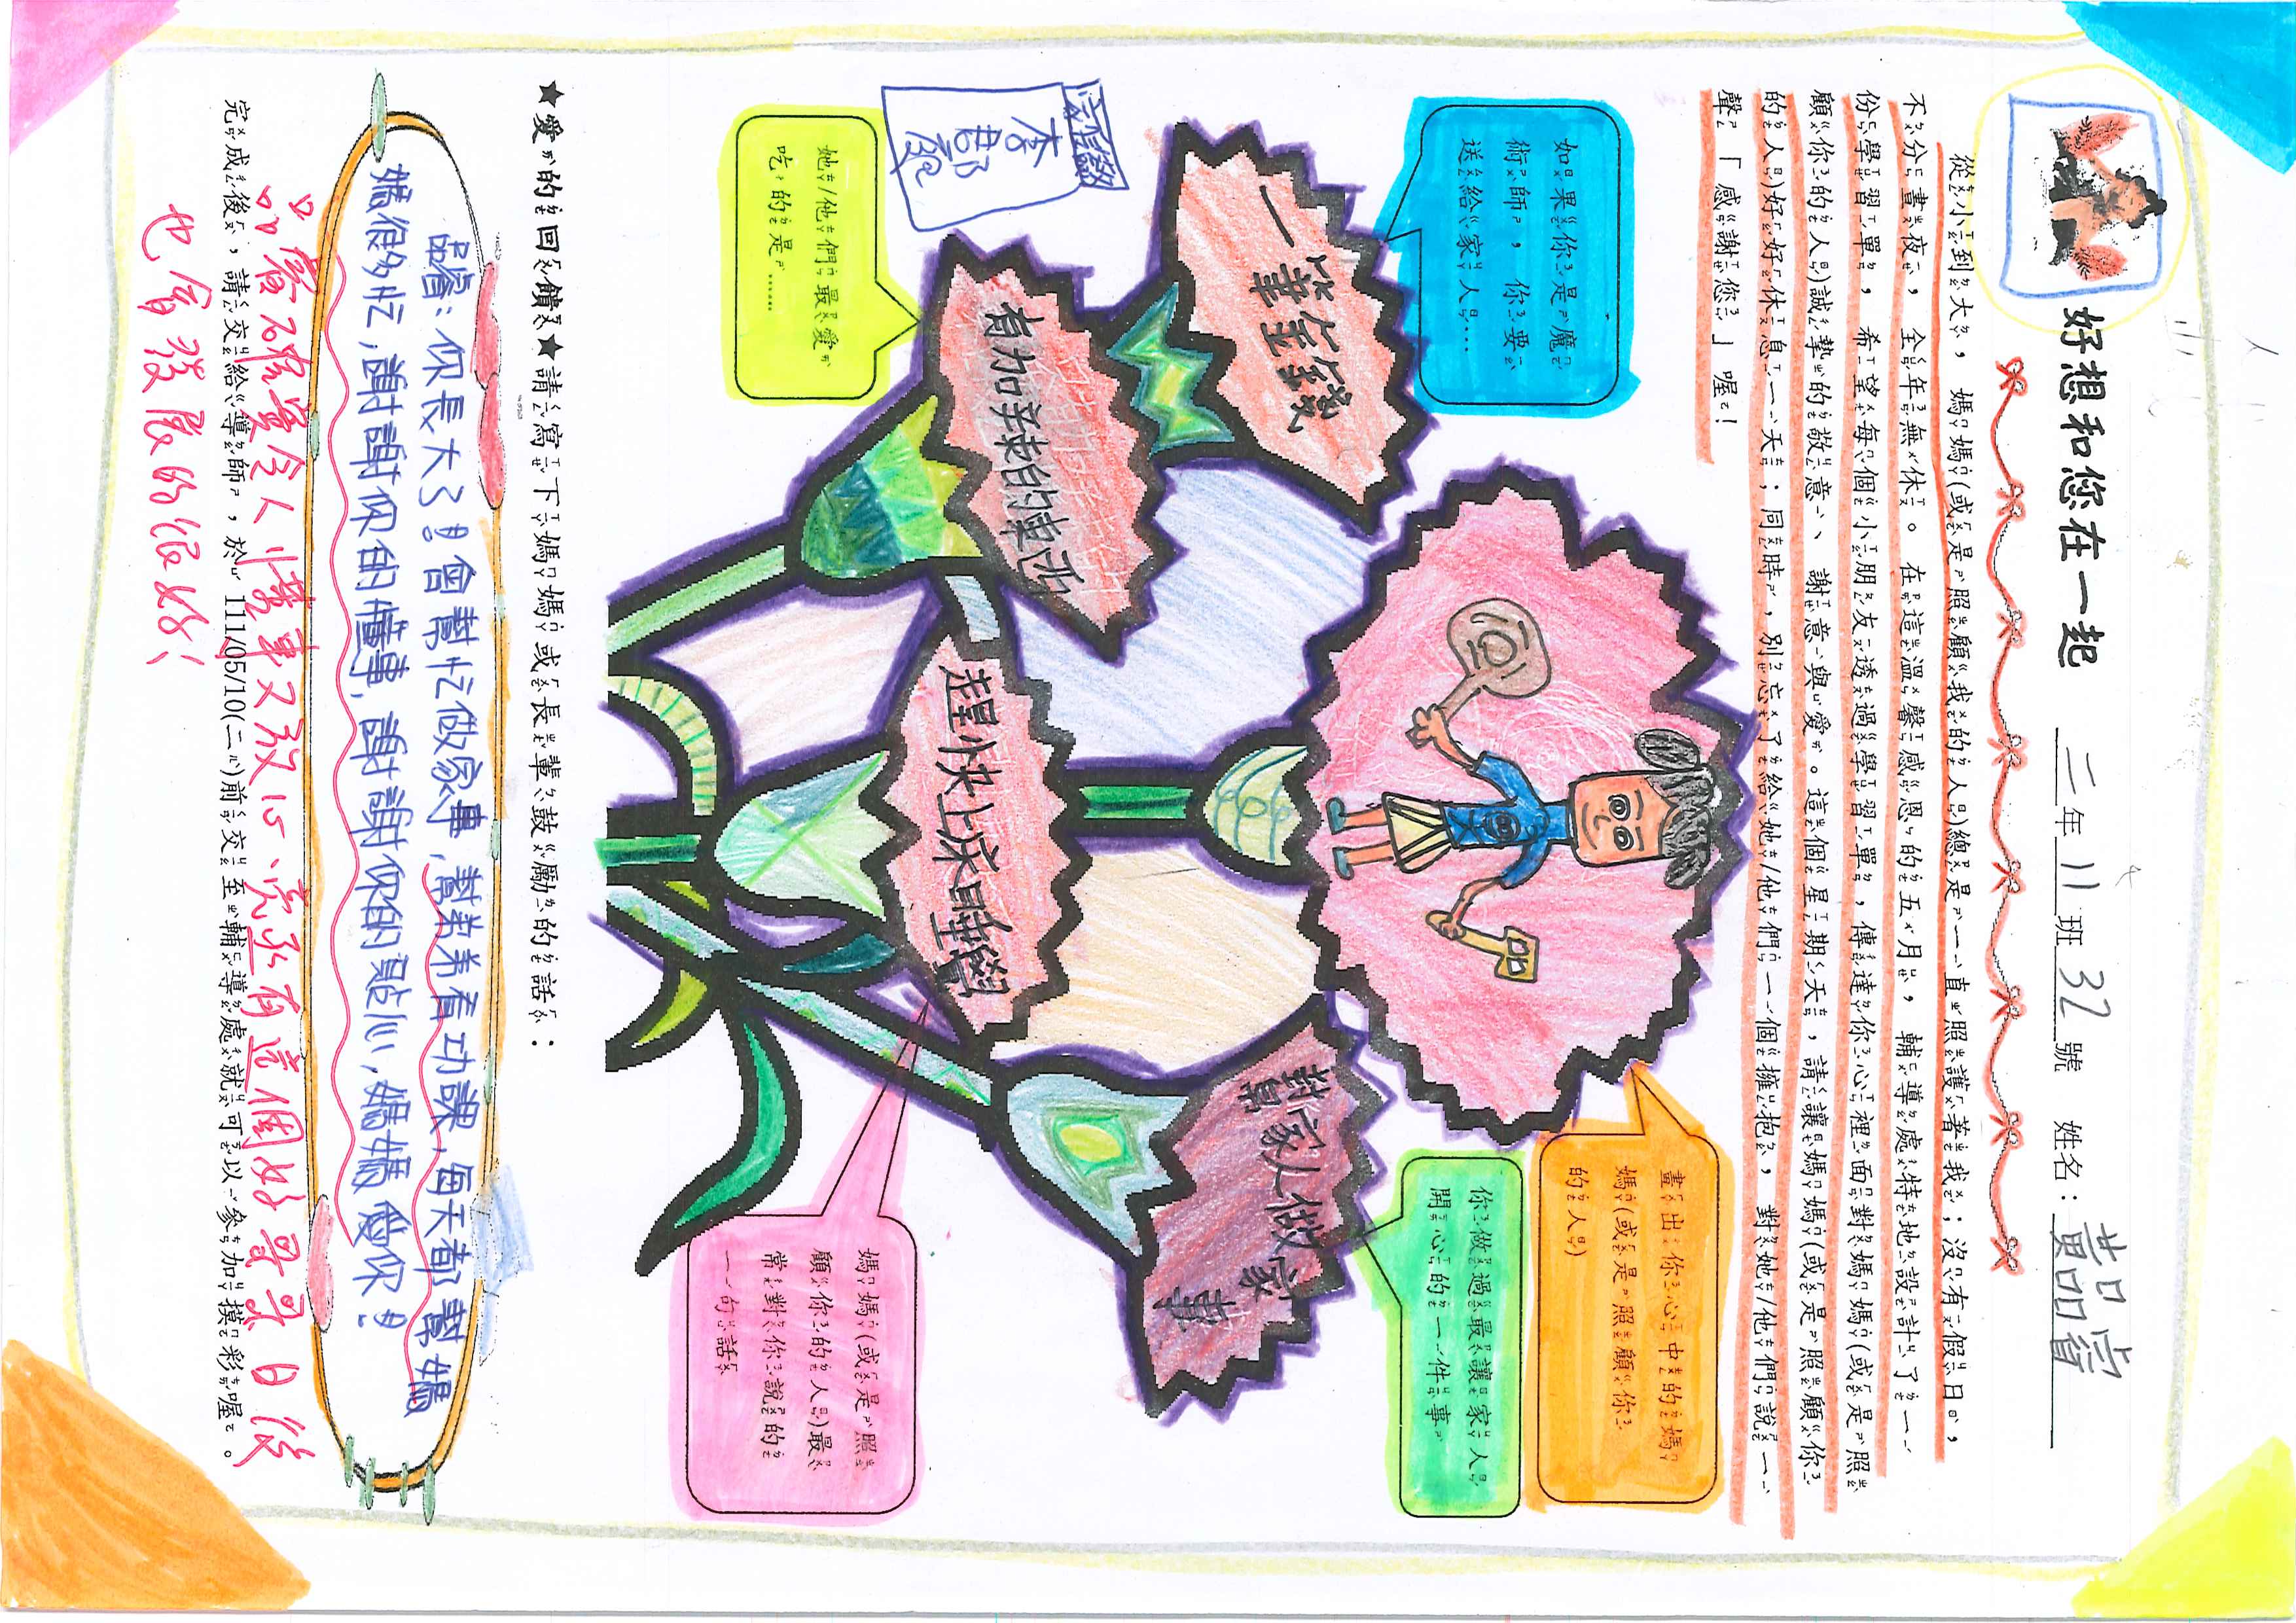 好想和您在一起 二年11班32號 姓名：黃品睿
從小到大，媽媽(或是照顧我的人)總是一直照護著我；沒有假日，
不分晝夜，全年無休。在這溫馨感恩的五月，輔導處特地設計了一
份學習單，希望每個小朋友透過學習單，傳達你心裡面對媽媽(或是照
顧你的人)誠摯的敬意、謝意與愛。這個星期天，請讓媽媽(或是照顧你
的人)好好休息一天，同時，別忘了給她/他們一個擁抱，對她/他們說一
聲「感謝您」喔！
如果你是魔
術師，你要
送給家人…
一筆金錢
畫出你心中的媽
媽(或是照顧你
的人)
你做過最讓家人
開心的一件事
幫家人做家事
她/他們最愛
吃的是……
有加辣的東西
媽媽(或是照
顧你的人)最
常對你說的
一句話
趕快上床睡覺
★愛的回饋★請寫下媽媽或長輩鼓勵的話：
品睿：你長大了！會幫忙做家事，幫弟弟看功課，每天都幫媽
媽很多忙，謝謝你的懂事，謝謝你的貼心，媽媽愛你！
品睿確實令人懂事又放心，亮丞有這個好哥哥日後
也會發展的很好！
完成後，請交給導師，於111/05/10(二)前交至輔導處就可以參加摸彩喔。